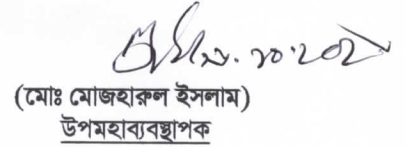 (মোঃ মোজহারুল ইসলাম)
উপমহাব্যবস্থাপক